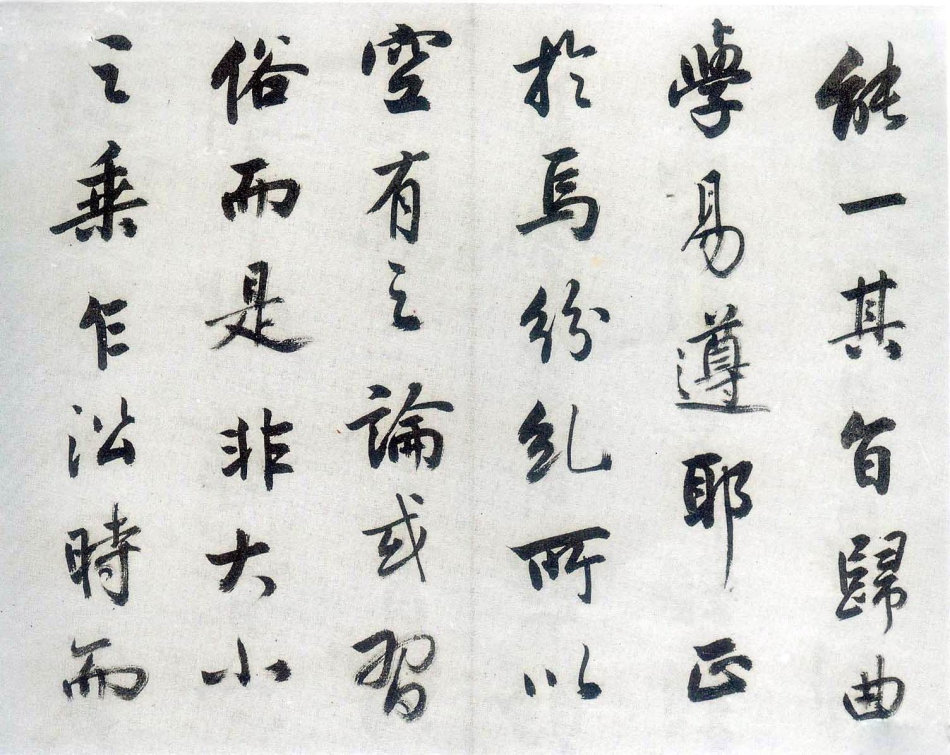 能一其旨歸曲
學易遵耶正
於焉紛乱所以
空有之論或習
俗而是非大小
之乗乍沿時而